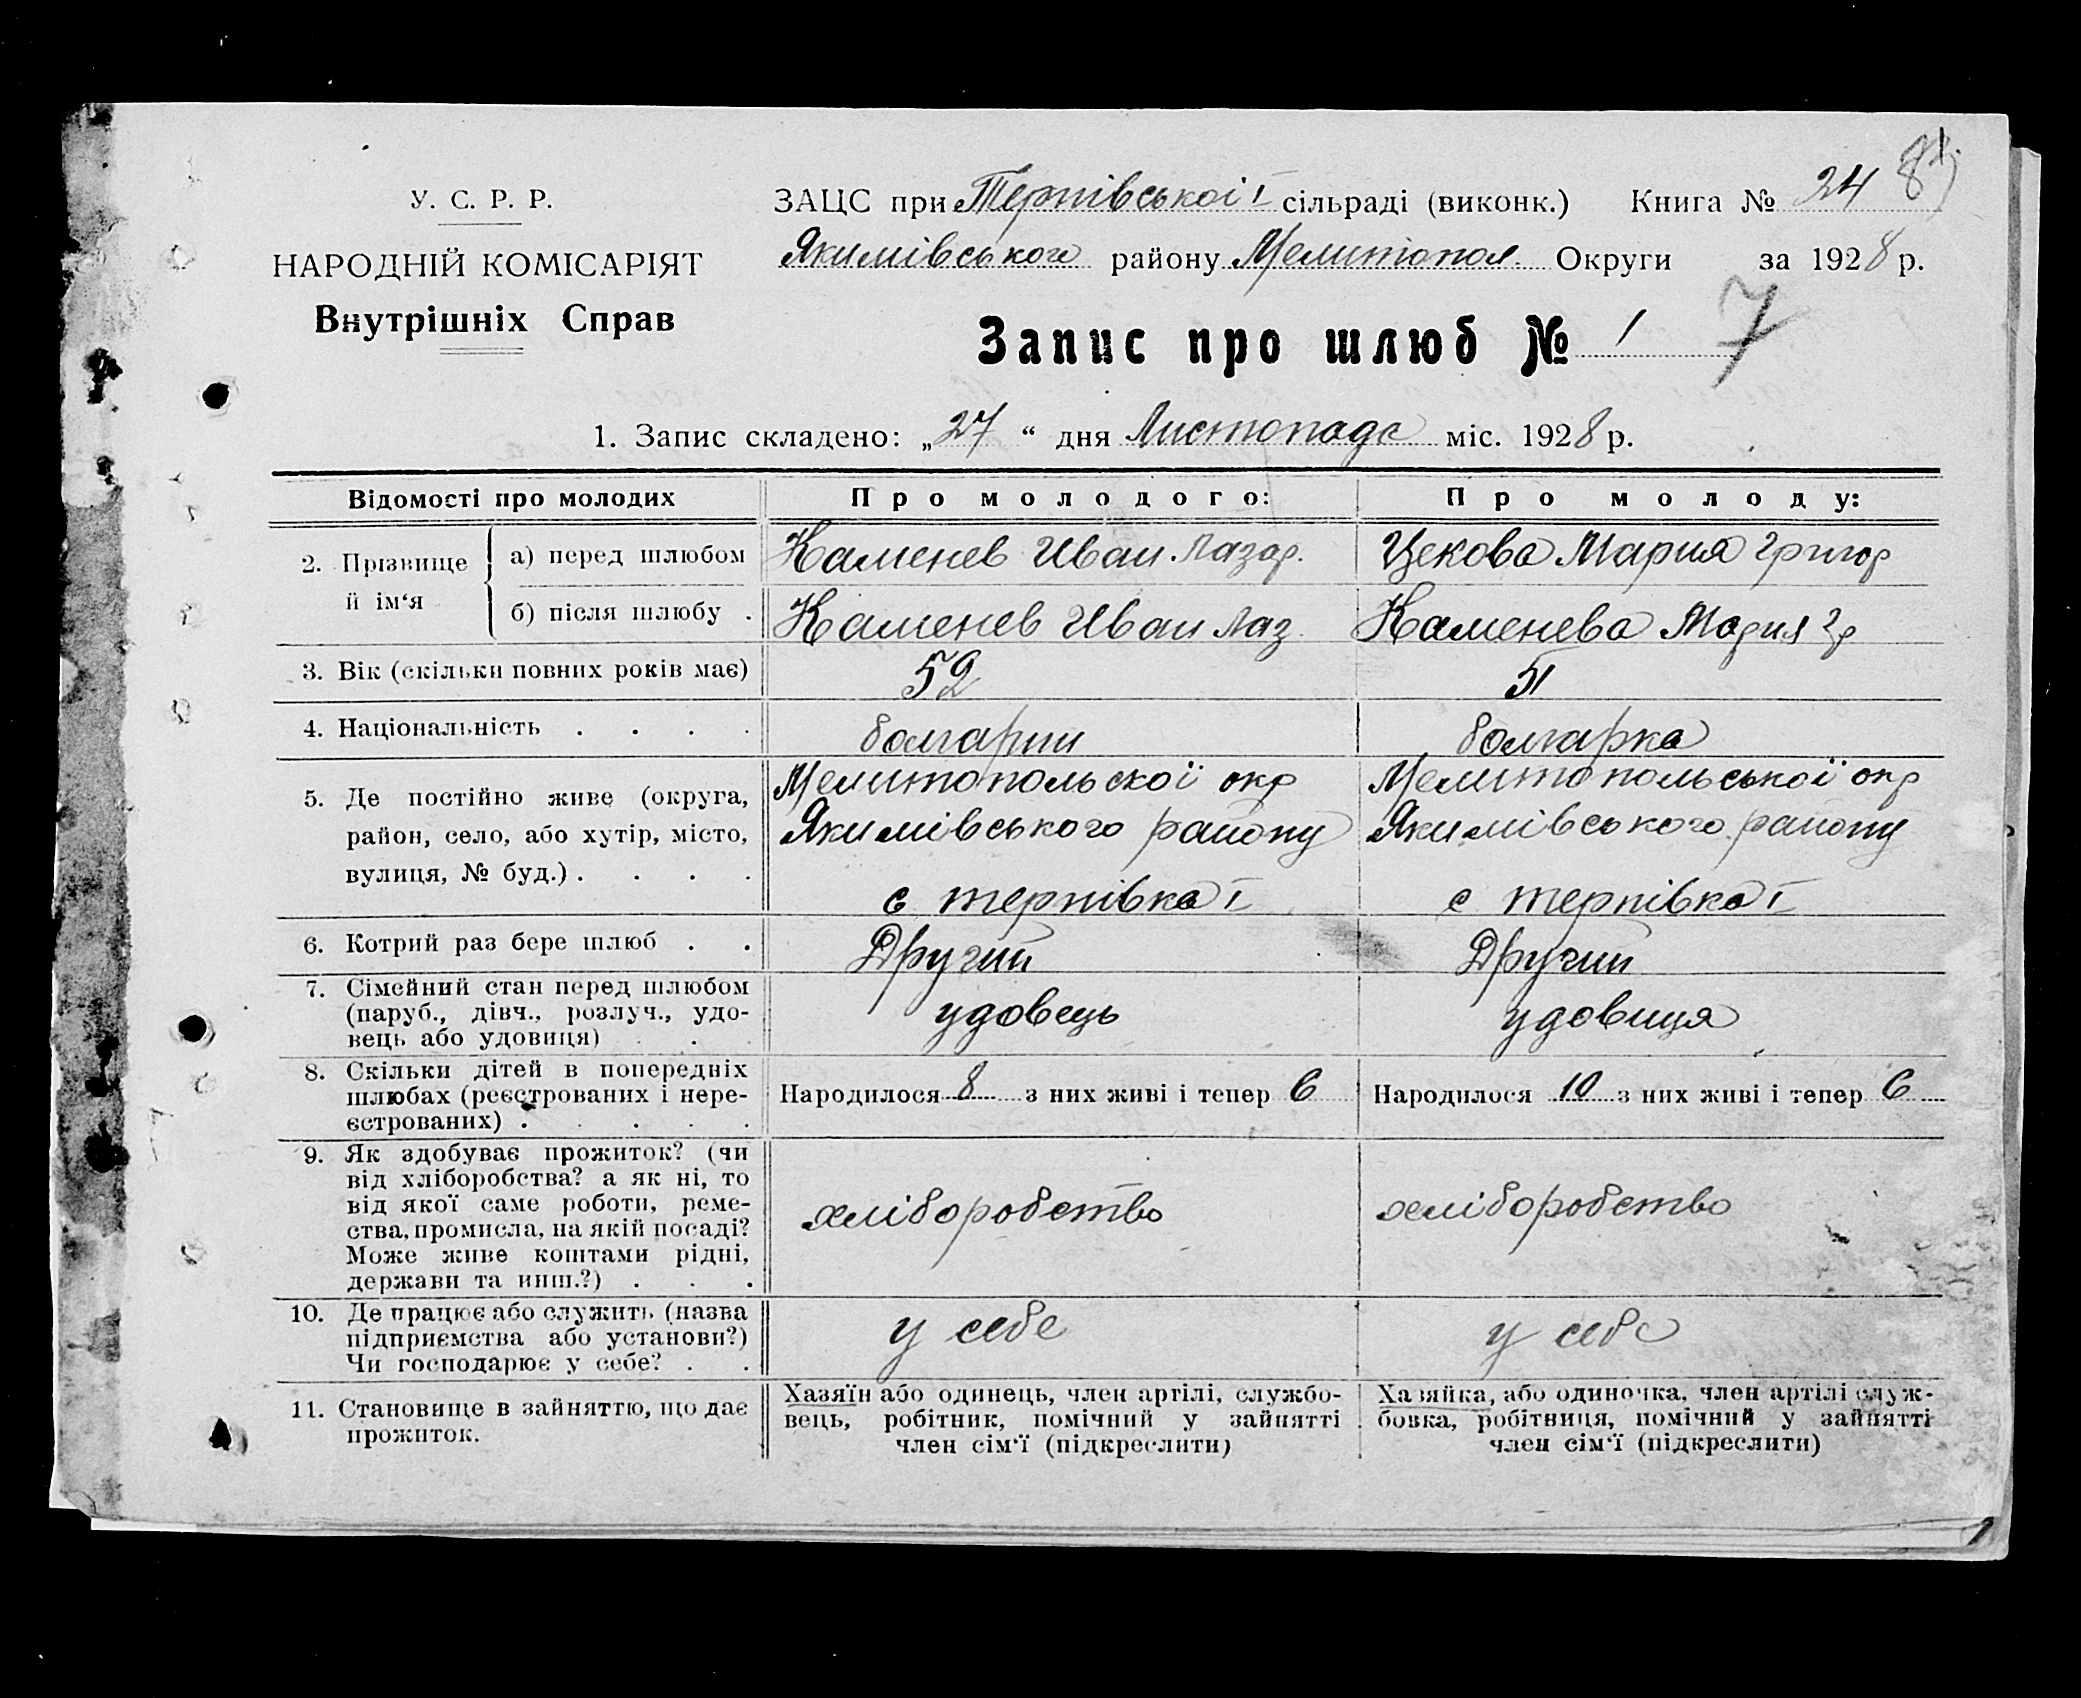 81
У. С. Р. Р.
НАРОДНІЙ КОМІСАРІЯТ
Внутрішніх Справ
ЗАЦС при Терпівської І сільраді (виконк.) Книга № 24
Якимівського району Мелитопол. Округи за 1928 р.
Запис про шлюб № 1 7
1. Запис складено: „27“ дня Листопада міс. 1928 р.
Відомості про молодих
Про молодого:
Про молоду:
2. Прізвище й ім‘я
а) перед шлюбом
Каменев Иван. Лазар.
Цекова Мария Григор
б) після шлюбу .
Каменев Иван Лаз
Каменева Мария Гр
3. Вік (скільки повних років має)
52
51
4. Національність . . . .
болгарин
болгарка
5. Де постійно живе (округа,
район, село, або хутір, місто,
вулиця, № буд.) . . . .
Мелитопольскої окр
Якимівського району
с терпівка І
Мелитопольської окр
Якимівського району
с терпівка І
6. Котрий раз бере шлюб . .
Другий
Другий
7. Сімейний стан перед шлюбом
(паруб., дівч., розлуч., удо-
вець або удовиця) . .
удовець
удовиця
8. Скільки дітей в попередніх
шлюбах (реєстрованих і нере-
єстрованих) . . . . .
Народилося 8 з них живі і тепер 6
Народилося 10 з них живі і тепер 6
9. Як здобуває прожиток? (чи
від хліборобства? а як ні, то
від якої саме роботи, реме-
ства, промисла, на якій посаді?
Може живе коштами рідні,
держави та инш.?) . . .
хліборобство
хліборобство
10. Де працює або служить (назва
підприємства або установи?)
Чи господарює у себе? . .
у себе
у себе
11. Становище в зайняттю, що дає
прожиток.
Хазяїн або одинець, член артілі, службо-
вець, робітник, помічний у зайнятті
член сім‘ї (підкреслити)
Хазяйка, або одиночка, член артілі служ-
бовка, робітниця, помічний у зайнятті
член сім‘ї (підкреслити)